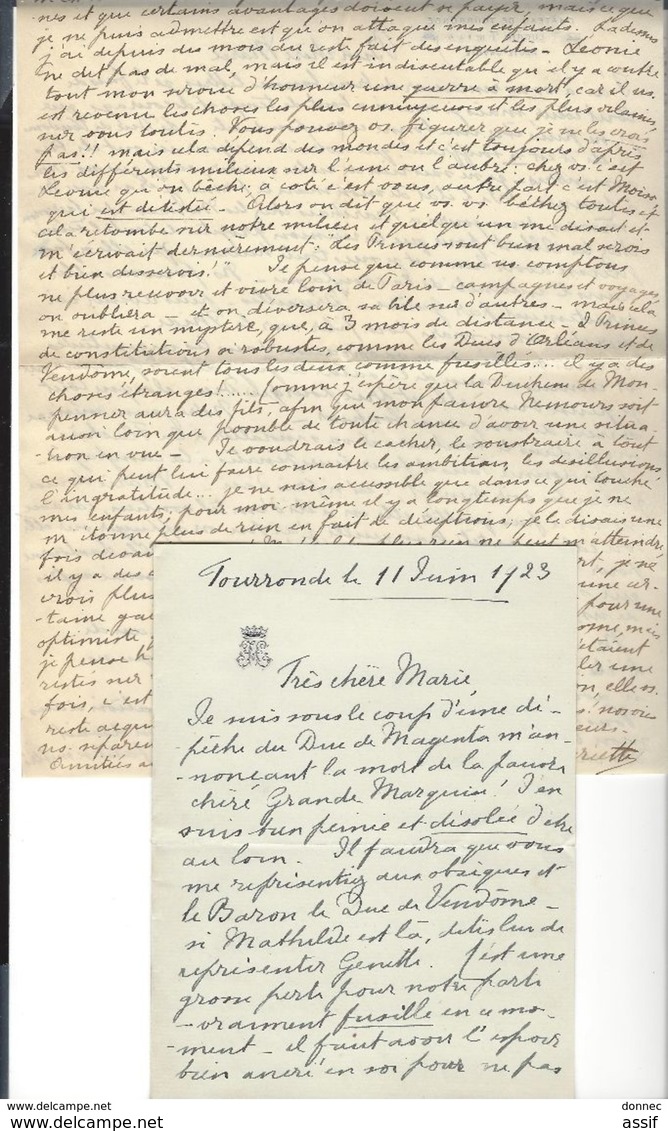 nes et que certains avantages doivent se payer, mais ce que
je ne puis admettre est que on attaque mes enfants. Là dessus
j'ai depuis des mois du reste fait des enquêtes. Léonie
ne dit pas de mal, mais il est indiscutable qu'il y a contre
tout mon service d'honneur une guerre à mort, car il ns
est revenu les choses les plus ennuyeuses et les plus vilaines
sur vous toutes. Vous pouvez vs. figurer que je ne les crois
pas!! mais cela dépend des mondes et c'est toujours d'après
les différents milieux sur l'une ou l'autre: chez vs. c'est
Léonie qu'on bêche; à coté c'est vous, autre part c'est
qui est détestée. Alors on dit que vs. vs. bêchez toutes et
cela retombe sur notre milieu et quelqu'un me disait et
m'écrivait dernièrement: "Les Princes sont bien mal servis
et bien desservis." Je pense que comme ns comptons
ne plus recevoir et vivre loin de Paris - campagnes et voyages
on oubliera - et on déversera sa bile sur d'autres - mais cela
me reste un mystère, que, à 3 mois de distance - 2 Princes
de constitutions si robustes, comme les Ducs d'Orléans et de
Vendôme, soient tous les deux comme fusillés.... il y a des
choses étranges!..... Comme j'espère que la Duchesse de Mon-
pensier aura des fils, afin que mon pauvre Nemours soit
aussi loin que possible de toute chance d'avoir une situa-
tion en vue - Je voudrais le cacher, le soustraire à tout
ce qui peut lui faire connaître les ambitions, les désillusions
l'ingratitude... je ne suis accessible que dans ce qui touche
mes enfants; pour moi-même il y a longtemps que je ne
m'étonne plus de rien en fait de déceptions; je le disais une
fois devant plus rien ne peut m'atteindre,
il y a des je ne
crois plus une cer-
taine pour une
optimiste mais
je pense étaient
restes sur une
fois, c'est
reste acquis
ns. séparent
Amitiés
Tourronde le 11 Juin 1923
Très chère Marie,
Je suis sous le coup d'une dé-
-pêche du Duc de Magenta m'an-
-nonçant la mort de la pauvre
chère Grande Marquise! J'en
suis bien peinée et désolée d'être
au loin. Il faudra que vous
me représentiez aux obsèques et
le Baron le Duc de Vendôme -
si Mathilde est là, dites lui de
représenter Genette. C'est une
grosse perte pour notre parti
-vraiment fusillé en ce mo-
-ment - il faut avoir l'espoir
bien ancré en soi pour ne pas
donnec
assif
www.delcampe.net